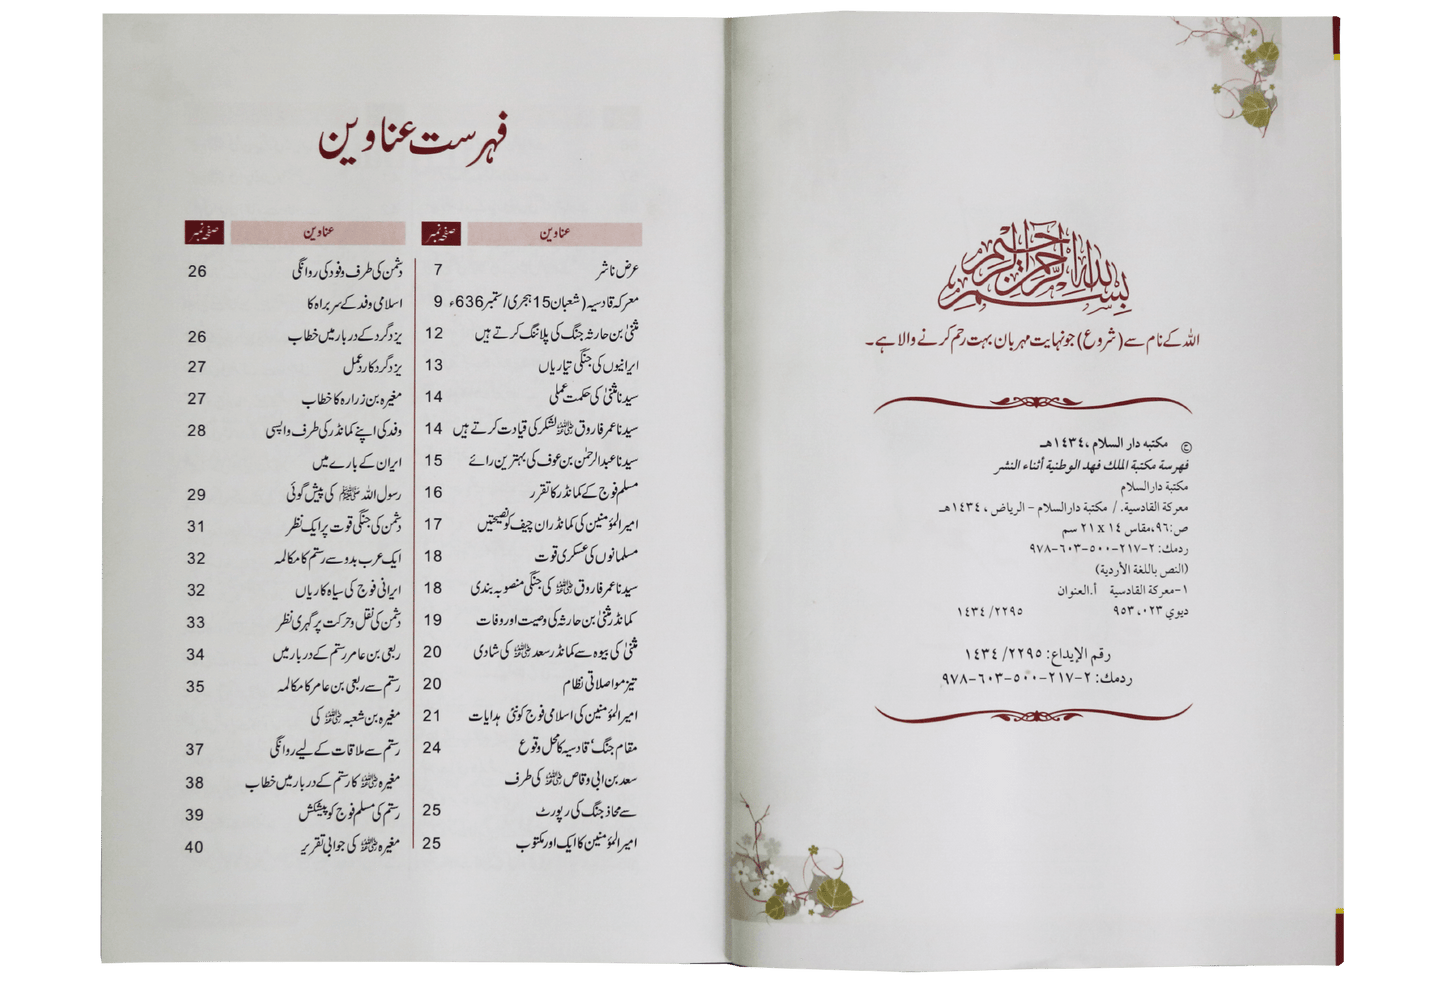 بسم الله الرحمن الرحيم
اللہ کے نام سے (شروع) جو نہایت مہربان بہت رحم کرنے والا ہے۔
© مكتبه دار السلام ،١٤٣٤هـ
فهرسة مكتبة الملك فهد الوطنية أثناء النشر
مكتبة دارالسلام
معركة القادسية. / مكتبة دارالسلام - الرياض ، ١٤٣٤هـ
ص:٩٦،مقاس ١٤ x ٢١ سم
ردمك: ٢-٢١٧-٥٠٠-٦٠٣-٩٧٨
(النص باللغة الأردية)
١-معركة القادسية أ.العنوان
ديوي ٩٥٣،٠٢٣ ١٤٣٤/٢٢٩٥
رقم الإيداع: ١٤٣٤/٢٢٩٥
ردمك: ٢-٢١٧-٥٠٠-٦٠٣-٩٧٨
فہرست عناوین
عناوین صفحہ نمبر
عرض ناشر 7
معرکہ قادسیہ (شعبان 15 ہجری/ستمبر 636ء 9
مثنیٰ بن حارثہ جنگ کی پلاننگ کرتے ہیں 12
ایرانیوں کی جنگی تیاریاں 13
سیدنا مثنیٰ کی حکمت عملی 14
سیدنا عمر فاروق رضی اللہ عنہ لشکر کی قیادت کرتے ہیں 14
سیدنا عبدالرحمٰن بن عوف کی بہترین رائے 15
مسلم فوج کے کمانڈر کا تقرر 16
امیرالمؤمنین کی کمانڈر ان چیف کو نصیحتیں 17
مسلمانوں کی عسکری قوت 18
سیدنا عمر فاروق رضی اللہ عنہ کی جنگی منصوبہ بندی 18
کمانڈر مثنیٰ بن حارثہ کی وصیت اور وفات 19
مثنیٰ کی بیوہ سے کمانڈر سعد رضی اللہ عنہ کی شادی 20
تیز مواصلاتی نظام 20
امیرالمؤمنین کی اسلامی فوج کو نئی ہدایات 21
مقام جنگ، قادسیہ کا محل وقوع 24
سعد بن ابی وقاص رضی اللہ عنہ کی طرف
سے محاذ جنگ کی رپورٹ 25
امیرالمؤمنین کا ایک اور مکتوب 25
عناوین صفحہ نمبر
دشمن کی طرف وفود کی روانگی 26
اسلامی وفد کے سربراہ کا
یزدگرد کے دربار میں خطاب 26
یزدگرد کا ردعمل 27
مغیرہ بن زرارہ کا خطاب 27
وفد کی اپنے کمانڈر کی طرف واپسی 28
ایران کے بارے میں
رسول اللہ ﷺ کی پیش گوئی 29
دشمن کی جنگی قوت پر ایک نظر 31
ایک عرب بدو سے رستم کا مکالمہ 32
ایرانی فوج کی سیاہ کاریاں 32
دشمن کی نقل وحرکت پر گہری نظر 33
ربعی بن عامر رستم کے دربار میں 34
رستم سے ربعی بن عامر کا مکالمہ 35
مغیرہ بن شعبہ رضی اللہ عنہ کی
رستم سے ملاقات کے لیے روانگی 37
مغیرہ رضی اللہ عنہ کا رستم کے دربار میں خطاب 38
رستم کی مسلم فوج کو پیشکش 39
مغیرہ رضی اللہ عنہ کی جوابی تقریر 40